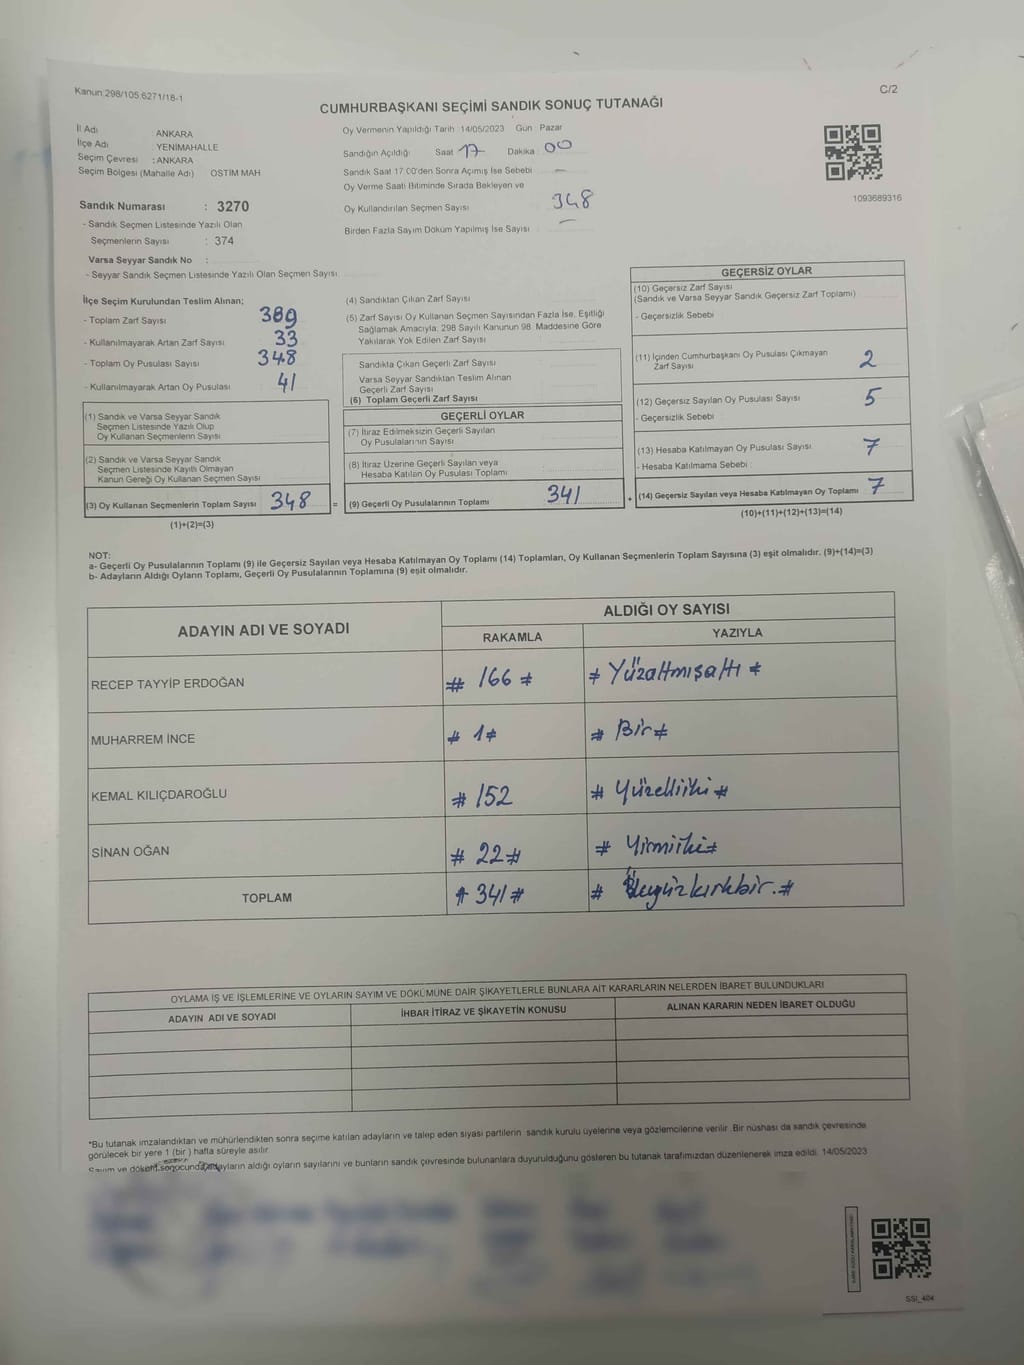 Kanun:298/105:6271/18-1
C/2
CUMHURBAŞKANI SEÇİMİ SANDIK SONUÇ TUTANAĞI
İl Adı ANKARA
İlçe Adı YENİMAHALLE
Seçim Çevresi : ANKARA
Seçim Bölgesi (Mahalle Adı) OSTİM MAH
Sandık Numarası : 3270
- Sandık Seçmen Listesinde Yazılı Olan
Seçmenlerin Sayısı : 374
Varsa Seyyar Sandık No :
- Seyyar Sandık Seçmen Listesinde Yazılı Olan Seçmen Sayısı
Oy Vermenin Yapıldığı Tarih 14/05/2023 Gün Pazar
Sandığın Açıldığı Saat 17 Dakika 00
Sandık Saat 17:00'den Sonra Açılmış İse Sebebi —
Oy Verme Saati Bitiminde Sırada Bekleyen ve
Oy Kullandırılan Seçmen Sayısı 348
Birden Fazla Sayım Döküm Yapılmış İse Sayısı : —
1093689316
İlçe Seçim Kurulundan Teslim Alınan;
- Toplam Zarf Sayısı 389
- Kullanılmayarak Artan Zarf Sayısı 33
- Toplam Oy Pusulası Sayısı 348
- Kullanılmayarak Artan Oy Pusulası 41
(1) Sandık ve Varsa Seyyar Sandık
Seçmen Listesinde Yazılı Olup
Oy Kullanan Seçmenlerin Sayısı
(2) Sandık ve Varsa Seyyar Sandık
Seçmen Listesinde Kayıtlı Olmayan
Kanun Gereği Oy Kullanan Seçmen Sayısı
(3) Oy Kullanan Seçmenlerin Toplam Sayısı 348
(1)+(2)=(3)
(4) Sandıktan Çıkan Zarf Sayısı
(5) Zarf Sayısı Oy Kullanan Seçmen Sayısından Fazla İse, Eşitliği
Sağlamak Amacıyla, 298 Sayılı Kanunun 98. Maddesine Göre
Yakılarak Yok Edilen Zarf Sayısı
Sandıkta Çıkan Geçerli Zarf Sayısı
Varsa Seyyar Sandıktan Teslim Alınan
Geçerli Zarf Sayısı
(6) Toplam Geçerli Zarf Sayısı
GEÇERLİ OYLAR
(7) İtiraz Edilmeksizin Geçerli Sayılan
Oy Pusulalarının Sayısı
(8) İtiraz Üzerine Geçerli Sayılan veya
Hesaba Katılan Oy Pusulası Toplamı
= (9) Geçerli Oy Pusulalarının Toplamı 341
GEÇERSİZ OYLAR
(10) Geçersiz Zarf Sayısı
(Sandık ve Varsa Seyyar Sandık Geçersiz Zarf Toplamı)
- Geçersizlik Sebebi
(11) İçinden Cumhurbaşkanı Oy Pusulası Çıkmayan
Zarf Sayısı 2
(12) Geçersiz Sayılan Oy Pusulası Sayısı 5
- Geçersizlik Sebebi
(13) Hesaba Katılmayan Oy Pusulası Sayısı 7
- Hesaba Katılmama Sebebi :
+ (14) Geçersiz Sayılan veya Hesaba Katılmayan Oy Toplamı 7
(10)+(11)+(12)+(13)=(14)
NOT:
a- Geçerli Oy Pusulalarının Toplamı (9) ile Geçersiz Sayılan veya Hesaba Katılmayan Oy Toplamı (14) Toplamları, Oy Kullanan Seçmenlerin Toplam Sayısına (3) eşit olmalıdır. (9)+(14)=(3)
b- Adayların Aldığı Oyların Toplamı, Geçerli Oy Pusulalarının Toplamına (9) eşit olmalıdır.
ADAYIN ADI VE SOYADI
ALDIĞI OY SAYISI
RAKAMLA YAZIYLA
RECEP TAYYİP ERDOĞAN # 166 # # Yüzaltmışaltı #
MUHARREM İNCE # 1 # # Bir #
KEMAL KILIÇDAROĞLU # 152 # Yüzelliiki #
SİNAN OĞAN # 22 # # Yirmiiki #
TOPLAM # 341 # # Üçyüzkırkbir. #
OYLAMA İŞ VE İŞLEMLERİNE VE OYLARIN SAYIM VE DÖKÜMÜNE DAİR ŞİKAYETLERLE BUNLARA AİT KARARLARIN NELERDEN İBARET BULUNDUKLARI
ADAYIN ADI VE SOYADI İHBAR İTİRAZ VE ŞİKAYETİN KONUSU ALINAN KARARIN NEDEN İBARET OLDUĞU
*Bu tutanak imzalandıktan ve mühürlendikten sonra seçime katılan adayların ve talep eden siyasi partilerin sandık kurulu üyelerine veya gözlemcilerine verilir. Bir nüshası da sandık çevresinde
görülecek bir yere 1 (bir) hafta süreyle asılır.
Sayım ve döküm sonucunda adayların aldığı oyların sayılarını ve bunların sandık çevresinde bulunanlara duyurulduğunu gösteren bu tutanak tarafımızdan düzenlenerek imza edildi. 14/05/2023
SSI_404